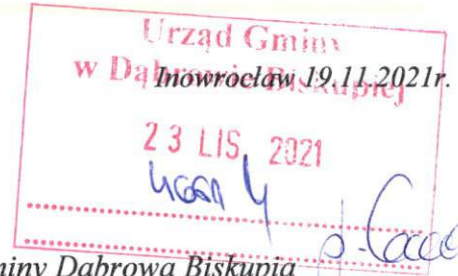 Urząd Gminy
w Dąbrowie Biskupiej
Inowrocław 19.11.2021r.
23 LIS. 2021
miny Dąbrowa Biskupia